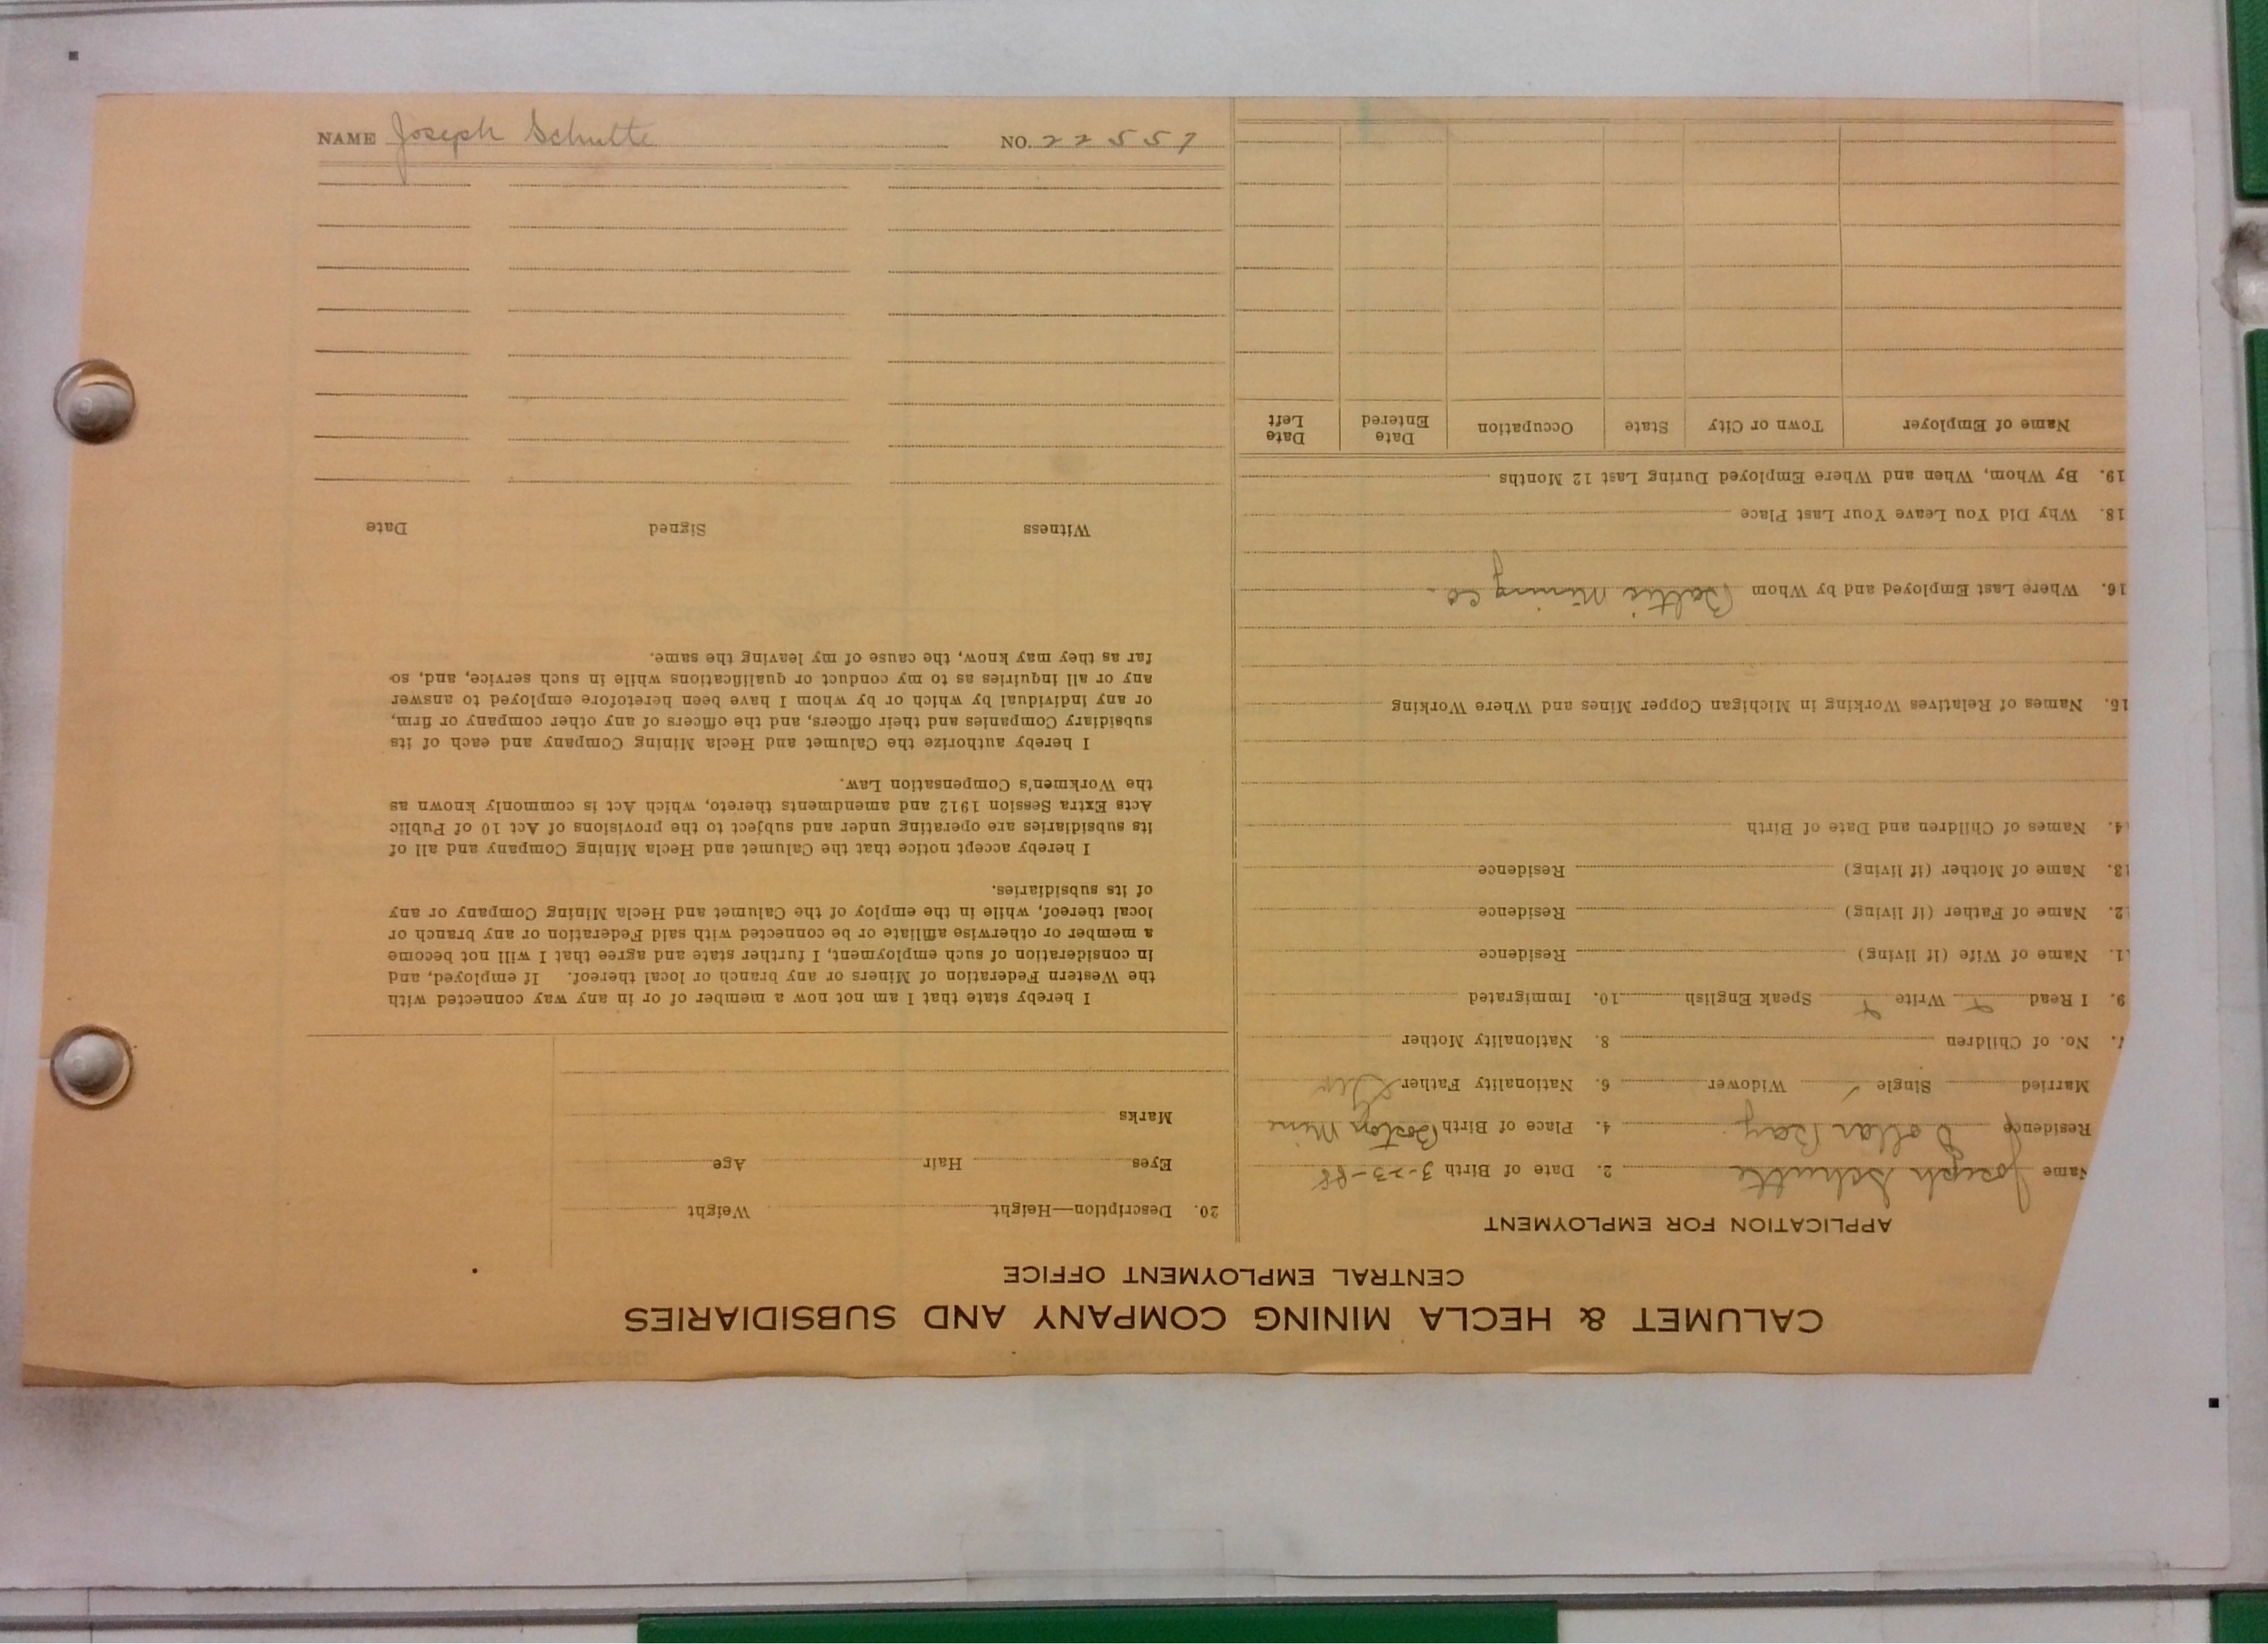 CALUMET & HECLA MINING COMPANY AND SUBSIDIARIES
CENTRAL EMPLOYMENT OFFICE
APPLICATION FOR EMPLOYMENT
Name Joseph Schulte 2. Date of Birth 3-23-88
Residence Dollar Bay 4. Place of Birth Boston Mine
Married Single ✓ Widower 6. Nationality Father Ger
7. No. of Children 8. Nationality Mother
9. I Read Write Speak English 10. Immigrated
11. Name of Wife (if living) Residence
12. Name of Father (if living) Residence
13. Name of Mother (if living) Residence
14. Names of Children and Date of Birth
15. Names of Relatives Working in Michigan Copper Mines and Where Working
16. Where Last Employed and by Whom Baltic Mining Co.
18. Why Did You Leave Your Last Place
19. By Whom, When and Where Employed During Last 12 Months
Name of Employer Town or City State Occupation Date Entered Date Left
20. Description—Height Weight
Eyes Hair Age
Marks
I hereby state that I am not now a member of or in any way connected with
the Western Federation of Miners or any branch or local thereof. If employed, and
in consideration of such employment, I further state and agree that I will not become
a member or otherwise affiliate or be connected with said Federation or any branch or
local thereof, while in the employ of the Calumet and Hecla Mining Company or any
of its subsidiaries.
I hereby accept notice that the Calumet and Hecla Mining Company and all of
its subsidiaries are operating under and subject to the provisions of Act 10 of Public
Acts Extra Session 1912 and amendments thereto, which Act is commonly known as
the Workmen's Compensation Law.
I hereby authorize the Calumet and Hecla Mining Company and each of its
subsidiary Companies and their officers, and the officers of any other company or firm,
or any individual by which or by whom I have been heretofore employed to answer
any or all inquiries as to my conduct or qualifications while in such service, and, so
far as they may know, the cause of my leaving the same.
Witness Signed Date
NAME Joseph Schulte NO. 22557